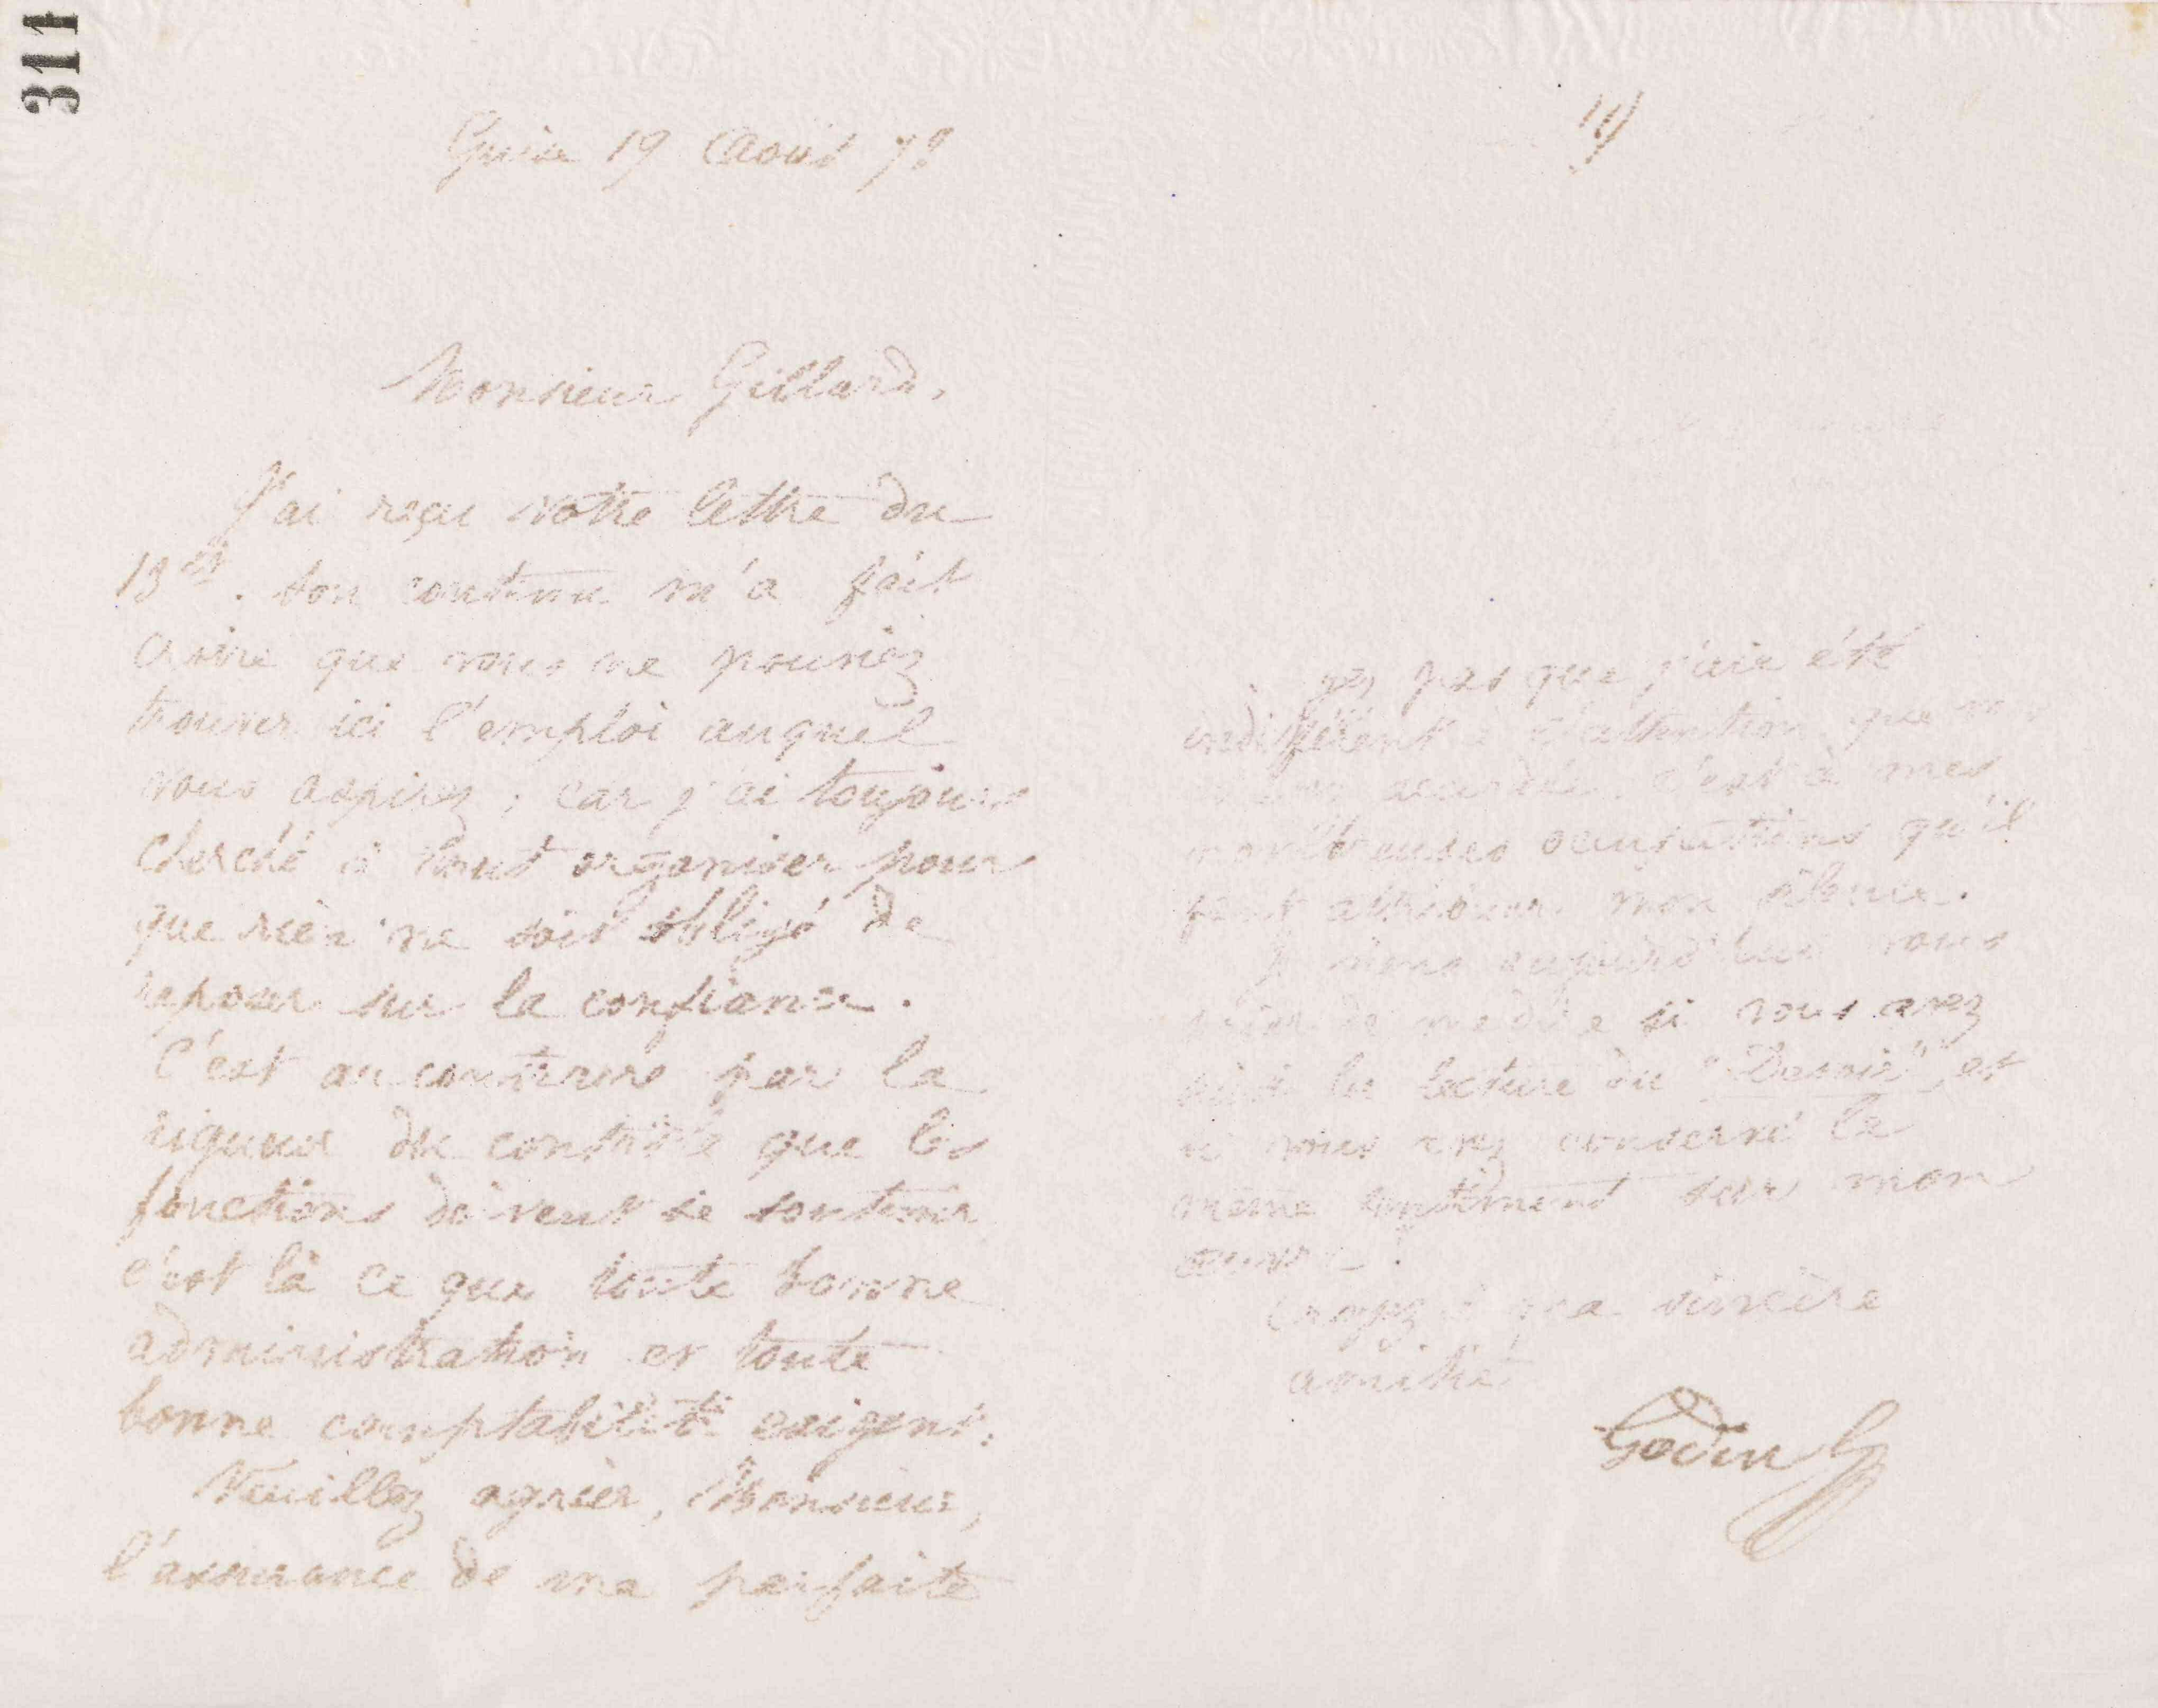 311
Guise 19 Août 78
Monsieur Gillard,
J'ai reçu votre lettre du
13 ct. Son contenu m'a fait
croire que vous ne pouviez
trouver ici l'emploi auquel
vous aspirez ; car j'ai toujours
cherché à tout organiser pour
que rien ne soit obligé de
reposer sur la confiance.
C'est au contraire par la
rigueur du contrôle que les
fonctions doivent se soutenir
c'est là ce que toute bonne
administration et toute
bonne comptabilité exigent.
Veuillez agréer, Monsieur,
l'assurance de ma parfaite
pas que j'aie été
indifférent à l'attention que vous
accordée. c'est à mes
nombreuses occupations qu'il
faut attribuer mon silence.
Je viens aujourd'hui vous
prier de me dire si vous avez
suivi la lecture du "Devoir" et
si vous avez conservé le
même sentiment sur mon
œuvre.
Croyez à ma sincère
amitié
Godin